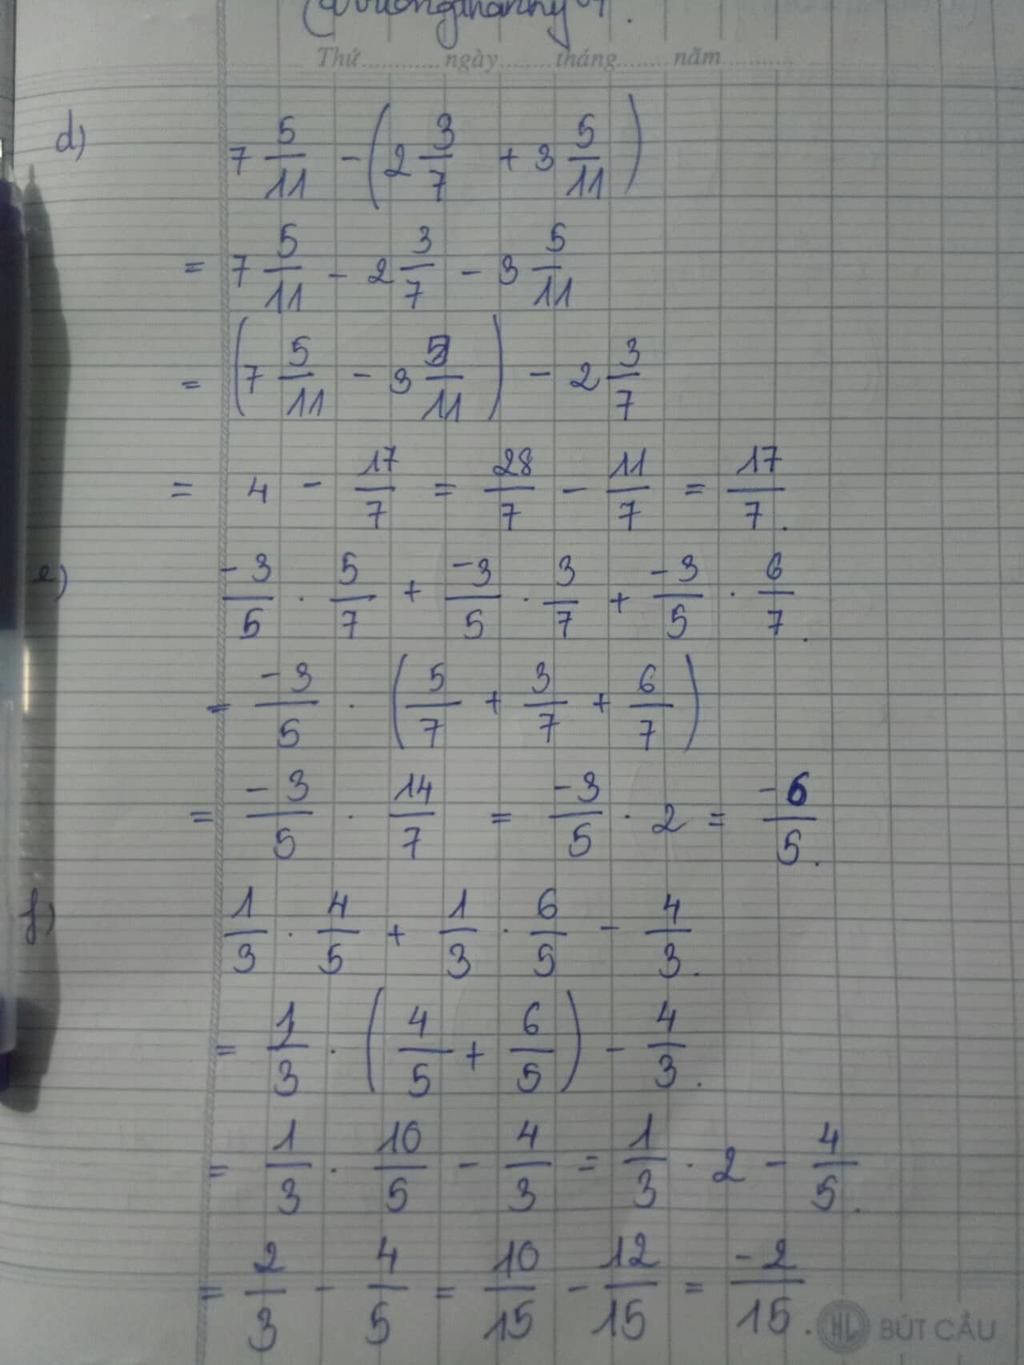 Thứ ngày tháng năm
d) 7 5/11 - (2 3/7 + 3 5/11)
= 7 5/11 - 2 3/7 - 3 5/11
= (7 5/11 - 3 5/11) - 2 3/7
= 4 - 17/7 = 28/7 - 11/7 = 17/7.
e) -3/5 . 5/7 + -3/5 . 3/7 + -3/5 . 6/7.
= -3/5 . (5/7 + 3/7 + 6/7)
= -3/5 . 14/7 = -3/5 . 2 = -6/5.
f) 1/3 . 4/5 + 1/3 . 6/5 - 4/3.
= 1/3 . (4/5 + 6/5) - 4/3.
= 1/3 . 10/5 - 4/3 = 1/3 . 2 - 4/5.
= 2/3 - 4/5 = 10/15 - 12/15 = -2/15.
HL BÚT CẦU